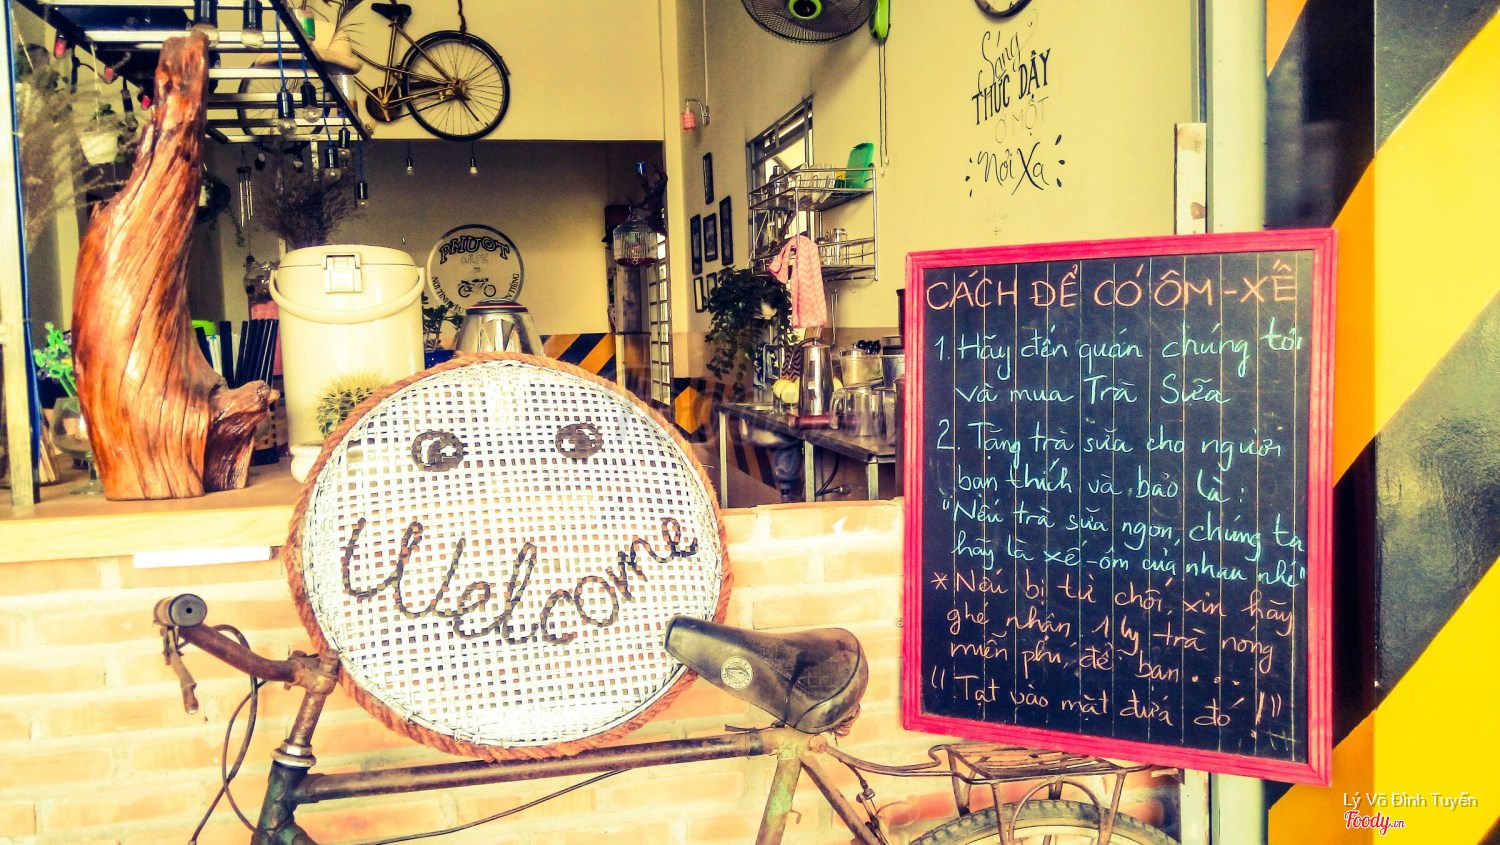 Sáng
THỨC DẬY
Ở MỘT
Nơi Xa
PHƯỢT
CAFE
Welcome
CÁCH ĐỂ CÓ ÔM-XẾ
1. Hãy đến quán chúng tôi
và mua Trà Sữa
2. Tặng trà sữa cho người
bạn thích và bảo là:
"Nếu trà sữa ngon, chúng ta
hãy là xế-ôm của nhau nhé"
* Nếu bị từ chối, xin hãy
ghé nhận 1 ly trà nóng
miễn phí, để bạn . . .
"Tạt vào mặt đứa đó !"
Lý Võ Đình Tuyến
Foody.vn